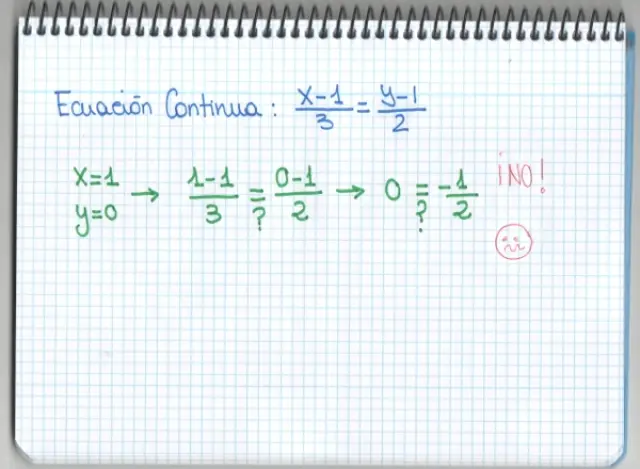 Ecuación Continua: x-1/3 = y-1/2
x=1 → 1-1/3 =? 0-1/2 → 0 =? -1/2 ¡NO!
y=0